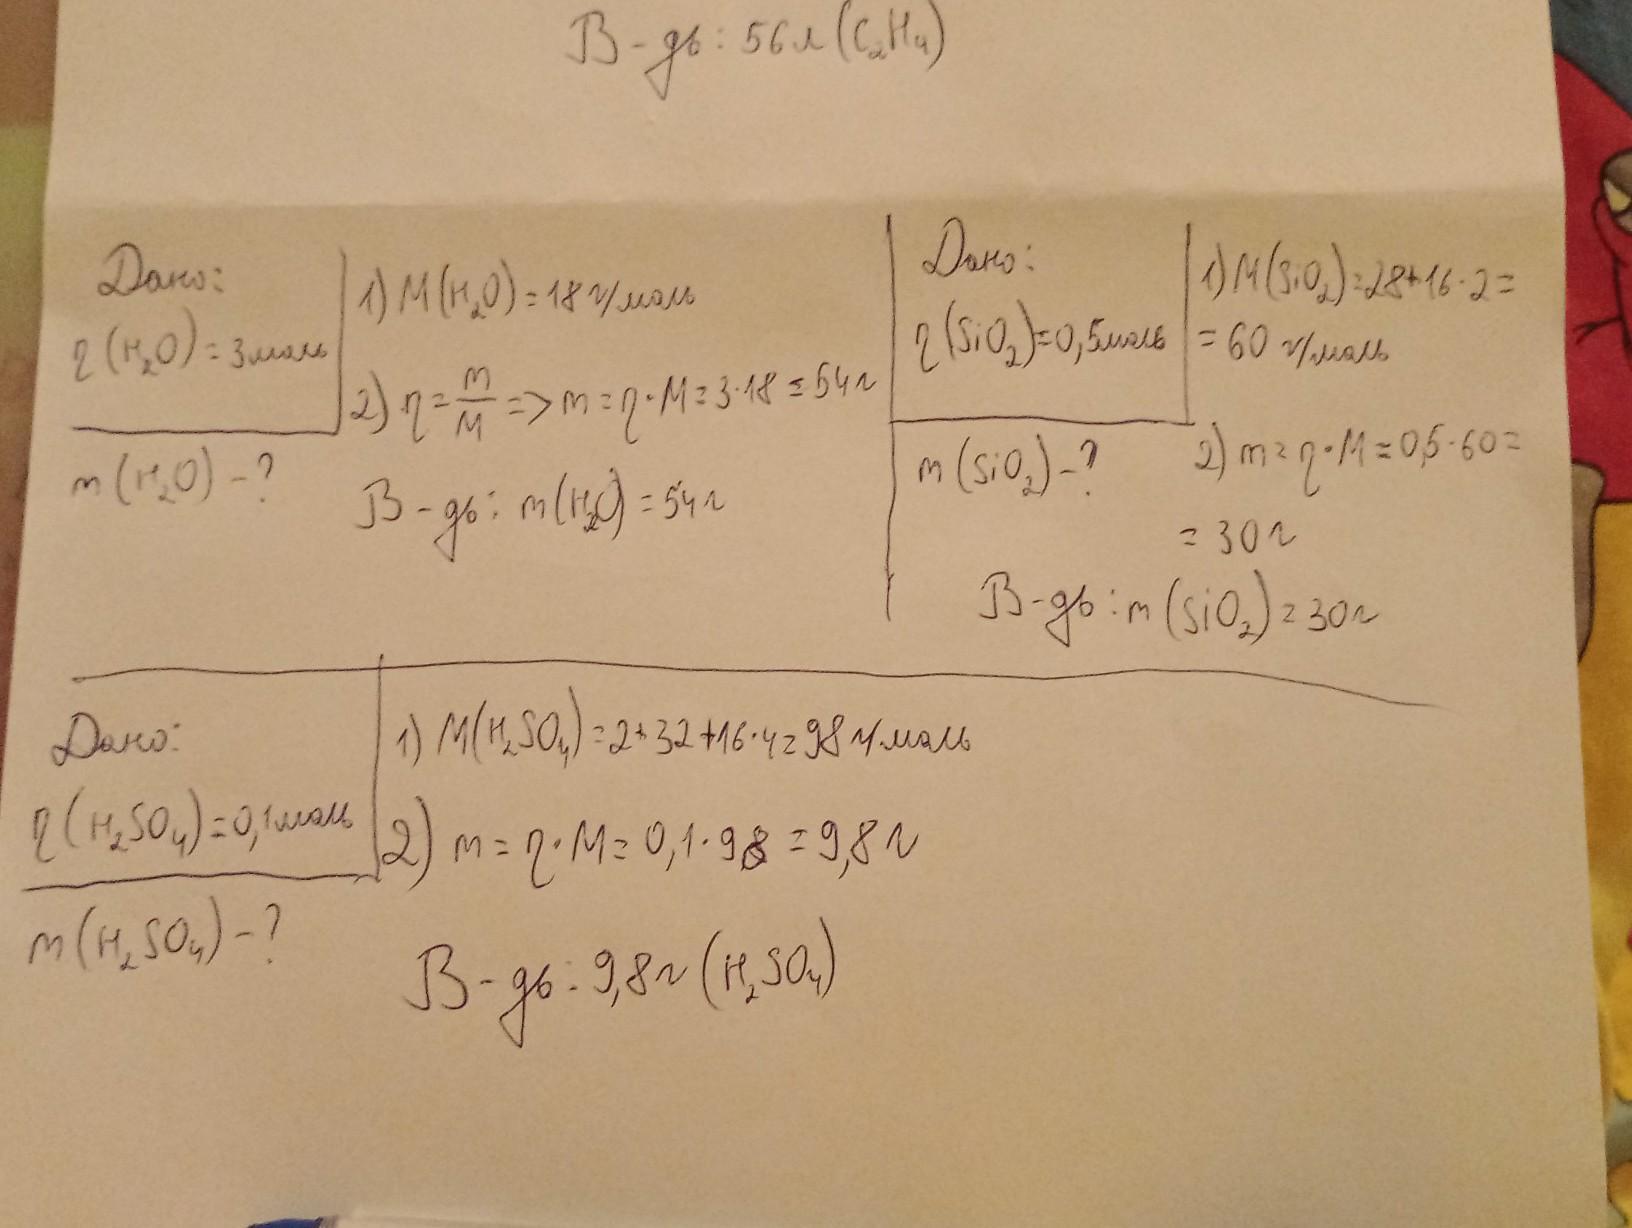 В-дь: 56 л (C₂H₄)
Дано:
η(H₂O) = 3 моль
m(H₂O) - ?
1) M(H₂O) = 18 г/моль
2) η = m/M => m = η·M = 3·18 = 54 г
В-дь: m(H₂O) = 54 г
Дано:
η(SiO₂) = 0,5 моль
m(SiO₂) - ?
1) M(SiO₂) = 28+16·2 =
= 60 г/моль
2) m = η·M = 0,5·60 =
= 30 г
В-дь: m(SiO₂) = 30 г
Дано:
η(H₂SO₄) = 0,1 моль
m(H₂SO₄) - ?
1) M(H₂SO₄) = 2+32+16·4 = 98 г/моль
2) m = η·M = 0,1·98 = 9,8 г
В-дь: 9,8 г (H₂SO₄)